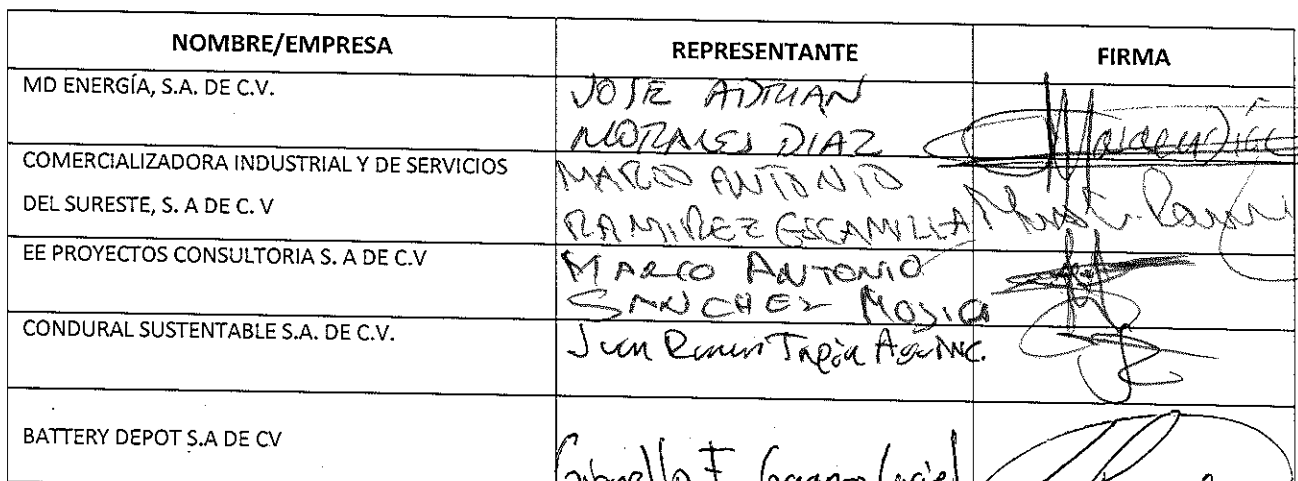 NOMBRE/EMPRESA REPRESENTANTE FIRMA
MD ENERGÍA, S.A. DE C.V. JOSE ADRIAN
MORALES DIAZ
COMERCIALIZADORA INDUSTRIAL Y DE SERVICIOS MARCO ANTONIO
DEL SURESTE, S. A DE C. V RAMIREZ ESCAMILLA
EE PROYECTOS CONSULTORIA S. A DE C.V MARCO ANTONIO
SANCHEZ MOSICA
CONDURAL SUSTENTABLE S.A. DE C.V. Juan Ramon Tapia
BATTERY DEPOT S.A DE CV